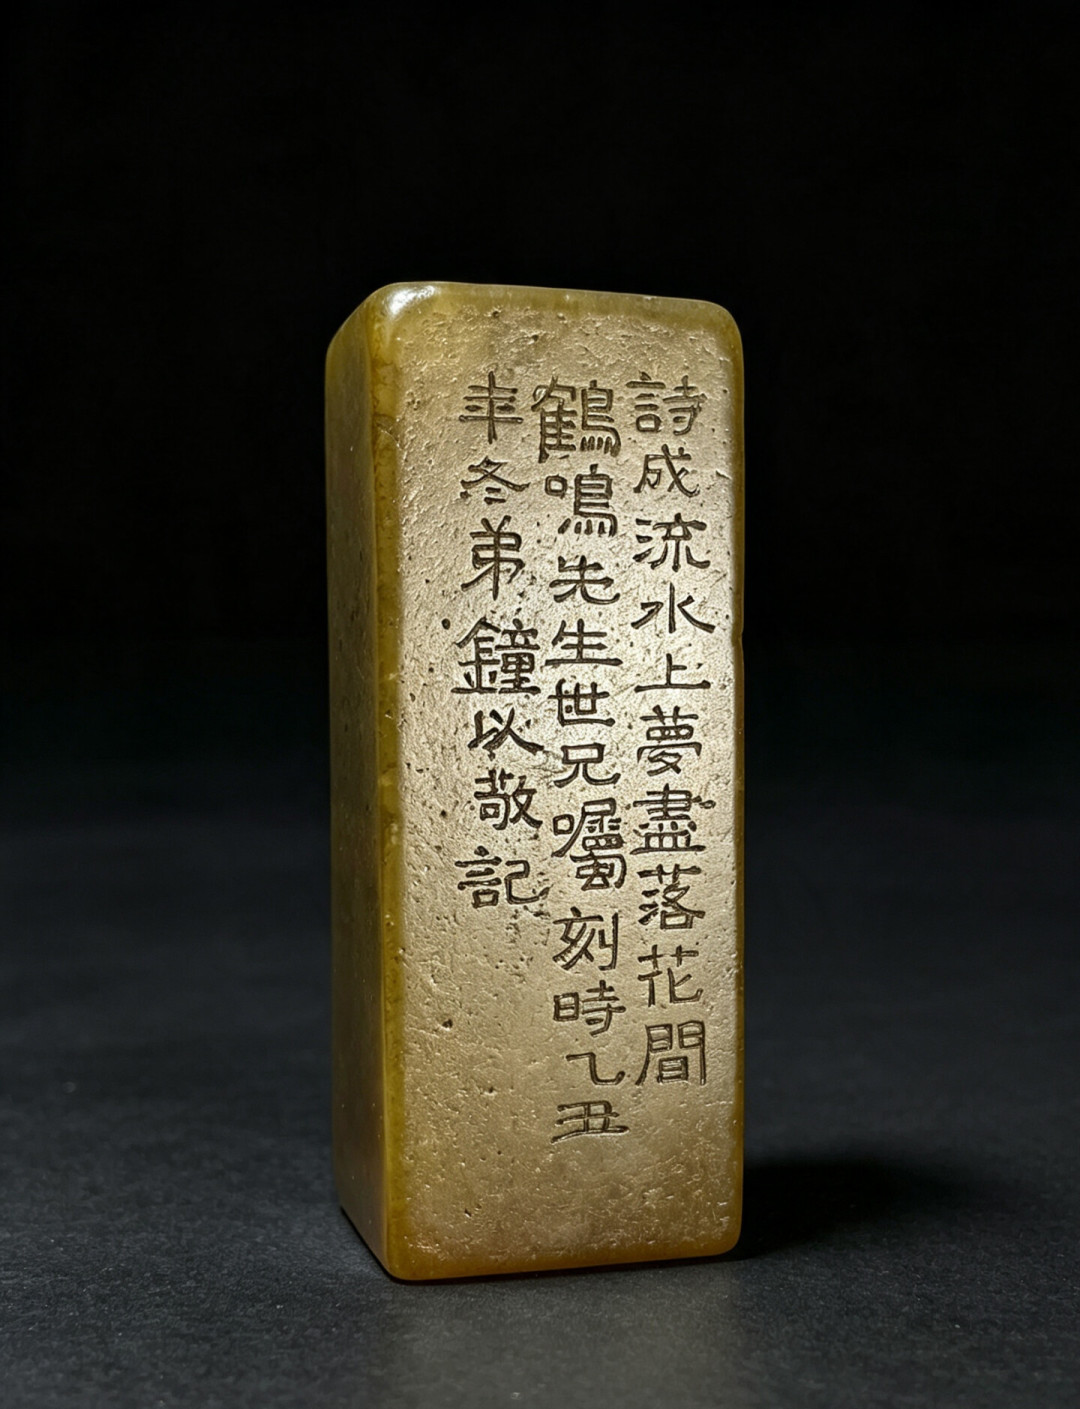 詩成流水上夢盡落花間
鶴鳴先生世兄囑刻時乙丑
年冬弟鐘以敬記